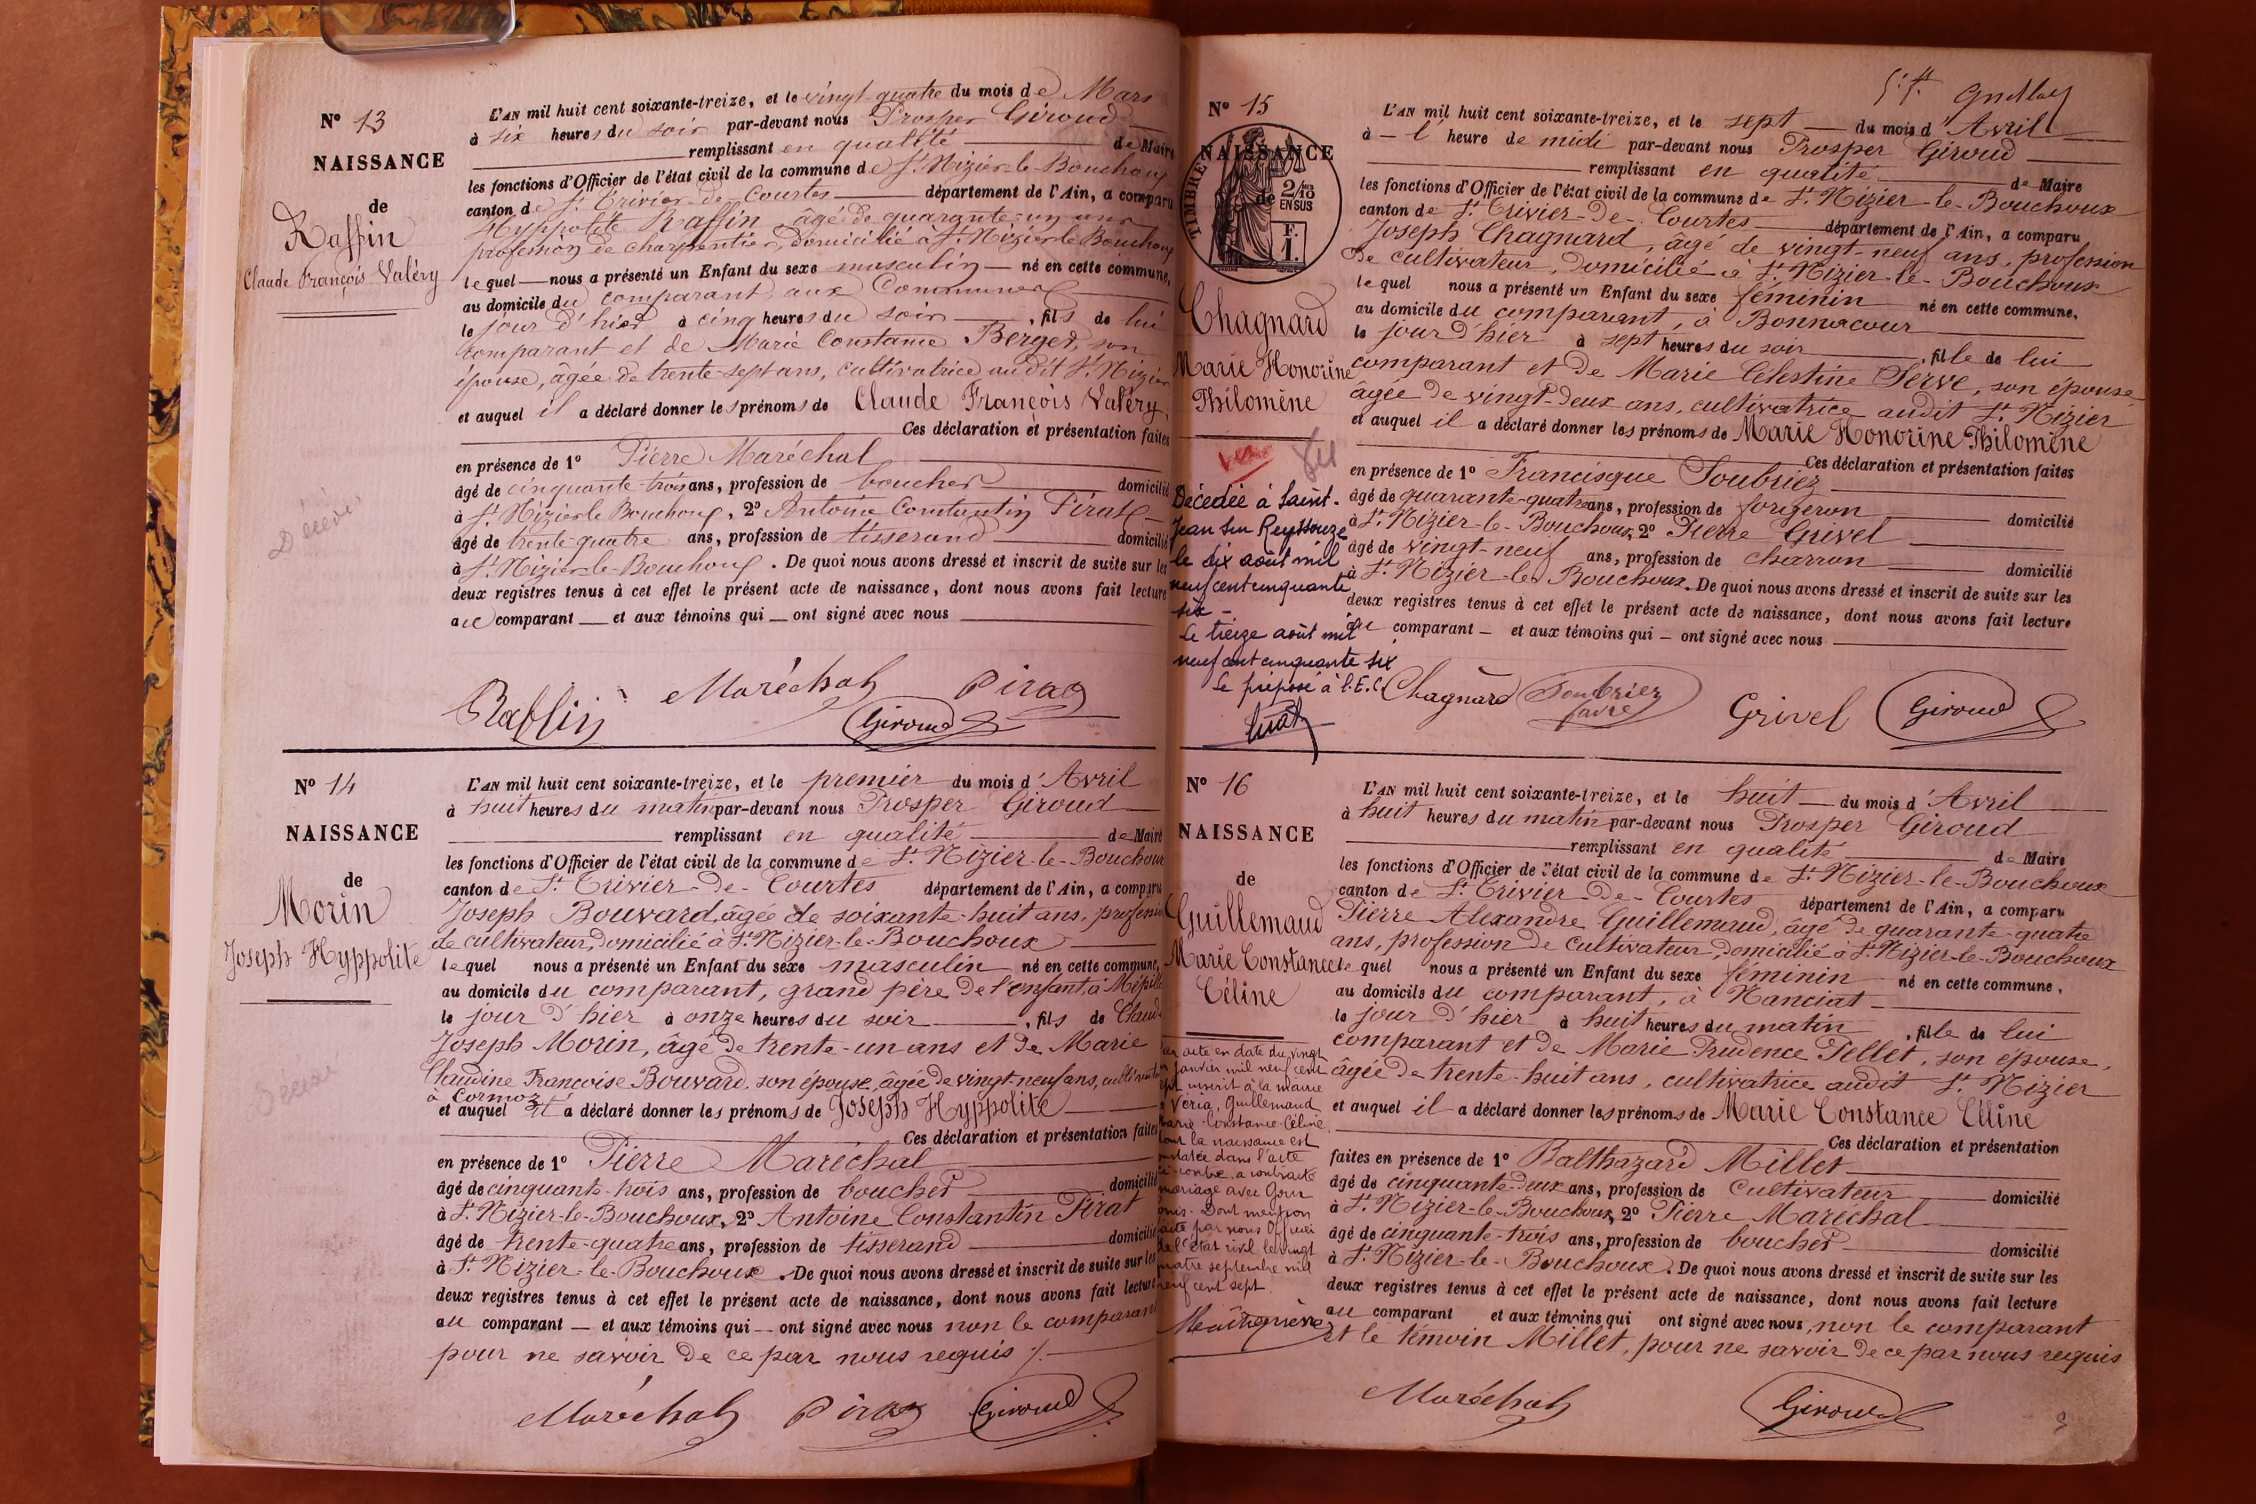 N° 13
NAISSANCE
de
Raffin
Claude François Valéry
L'AN mil huit cent soixante-treize, et le vingt-quatre du mois de Mars
à six heures du soir par-devant nous Prosper Giroud
remplissant en qualité de Maire
les fonctions d'Officier de l'état civil de la commune de St Nizier-le-Bouchoux
canton de St Trivier-de-Courtes département de l'Ain, a comparu
Hyppolite Raffin âgé de quarante-un ans
profession de charpentier, domicilié à St Nizier le Bouchoux
lequel nous a présenté un Enfant du sexe masculin né en cette commune,
au domicile du comparant aux Communes
le jour d'hier à cinq heures du soir, fils de lui
comparant et de Marie Constance Berger, son
épouse, âgée de trente-sept ans, cultivatrice audit St Nizier
et auquel il a déclaré donner les prénoms de Claude François Valéry
Ces déclaration et présentation faites
en présence de 1° Pierre Maréchal
âgé de cinquante-trois ans, profession de boucher domicilié
à St Nizier le Bouchoux, 2° Antoine Constantin Pirat
âgé de trente-quatre ans, profession de tisserand domicilié
à St Nizier-le-Bouchoux. De quoi nous avons dressé et inscrit de suite sur les
deux registres tenus à cet effet le présent acte de naissance, dont nous avons fait lecture
au comparant et aux témoins qui ont signé avec nous
Raffin Maréchal Pirat
Giroud
N° 14
NAISSANCE
de
Morin
Joseph Hyppolite
L'AN mil huit cent soixante-treize, et le premier du mois d'Avril
à huit heures du matin par-devant nous Prosper Giroud
remplissant en qualité de Maire
les fonctions d'Officier de l'état civil de la commune de St Nizier-le-Bouchoux
canton de St Trivier-de-Courtes département de l'Ain, a comparu
Joseph Bouvard, âgée de soixante-huit ans, profession
de cultivateur, domicilié à St Nizier-le-Bouchoux
lequel nous a présenté un Enfant du sexe masculin né en cette commune,
au domicile du comparant, grand père de l'enfant, à
le jour d'hier à onze heures du soir, fils de Claude
Joseph Morin, âgé de trente-un ans et de Marie
Claudine Françoise Bouvard, son épouse, âgée de vingt-neuf ans, cultivatrice
à Cormoz
et auquel il a déclaré donner les prénoms de Joseph Hyppolite
Ces déclaration et présentation faites
en présence de 1° Pierre Maréchal
âgé de cinquante-trois ans, profession de boucher domicilié
à St Nizier-le-Bouchoux, 2° Antoine Constantin Pirat
âgé de trente-quatre ans, profession de tisserand domicilié
à St Nizier-le-Bouchoux. De quoi nous avons dressé et inscrit de suite sur les
deux registres tenus à cet effet le présent acte de naissance, dont nous avons fait lecture
au comparant et aux témoins qui ont signé avec nous non le comparant
pour ne savoir de ce par nous requis
Maréchal Pirat Giroud
N° 15
NAISSANCE
de
TIMBRE
2/10 EN SUS
F. 1.
Chagnard
Marie Honorine
Philomène
Décédée à Saint-
Jean sur Reyssouze
le dix août mil
neuf cent cinquante
six -
Le treize août mil
neuf cent cinquante six
Le préposé à l'E.C.
L'AN mil huit cent soixante-treize, et le sept du mois d'Avril
à l'heure de midi par-devant nous Prosper Giroud
remplissant en qualité de Maire
les fonctions d'Officier de l'état civil de la commune de St Nizier-le-Bouchoux
canton de St Trivier-de-Courtes département de l'Ain, a comparu
Joseph Chagnard, âgé de vingt-neuf ans, profession
de cultivateur, domicilié à St Nizier-le-Bouchoux
lequel nous a présenté un Enfant du sexe féminin né en cette commune,
au domicile du comparant, à Bonnacour
le jour d'hier à sept heures du soir, fille de lui
comparant et de Marie Célestine Serve, son épouse
âgée de vingt-deux ans, cultivatrice audit St Nizier
et auquel il a déclaré donner les prénoms de Marie Honorine Philomène
Ces déclaration et présentation faites
en présence de 1° Francisque Soubriez
âgé de quarante-quatre ans, profession de forgeron domicilié
à St Nizier-le-Bouchoux, 2° Pierre Grivel
âgé de vingt-neuf ans, profession de charron domicilié
à St Nizier-le-Bouchoux. De quoi nous avons dressé et inscrit de suite sur les
deux registres tenus à cet effet le présent acte de naissance, dont nous avons fait lecture
au comparant et aux témoins qui ont signé avec nous
Chagnard Soubriez Grivel Giroud
N° 16
NAISSANCE
de
Guillemaud
Marie Constance
Céline
acte en date du vingt
janvier mil neuf cent
sept inscrit à la mairie
Véria, Guillemaud
Marie Constance Céline
dont la naissance est
constatée dans l'acte
ci-contre, a contracté
mariage avec
Dont mention
faite par nous Officier
de l'état civil le vingt
quatre septembre mil
neuf cent sept.
L'AN mil huit cent soixante-treize, et le huit du mois d'Avril
à huit heures du matin par-devant nous Prosper Giroud
remplissant en qualité de Maire
les fonctions d'Officier de l'état civil de la commune de St Nizier-le-Bouchoux
canton de St Trivier-de-Courtes département de l'Ain, a comparu
Pierre Alexandre Guillemaud, âgé de quarante-quatre
ans, profession de cultivateur, domicilié à St Nizier-le-Bouchoux
lequel nous a présenté un Enfant du sexe féminin né en cette commune,
au domicile du comparant, à Nanciat
le jour d'hier à huit heures du matin, fille de lui
comparant et de Marie Prudence Pellet, son épouse,
âgée de trente-huit ans, cultivatrice audit St Nizier
et auquel il a déclaré donner les prénoms de Marie Constance Céline
Ces déclaration et présentation
faites en présence de 1° Balthazard Millet
âgé de cinquante-deux ans, profession de Cultivateur domicilié
à St Nizier-le-Bouchoux, 2° Pierre Maréchal
âgé de cinquante-trois ans, profession de boucher domicilié
à St Nizier-le-Bouchoux. De quoi nous avons dressé et inscrit de suite sur les
deux registres tenus à cet effet le présent acte de naissance, dont nous avons fait lecture
au comparant et aux témoins qui ont signé avec nous, non le comparant
et le témoin Millet, pour ne savoir de ce par nous requis
Maréchal Giroud